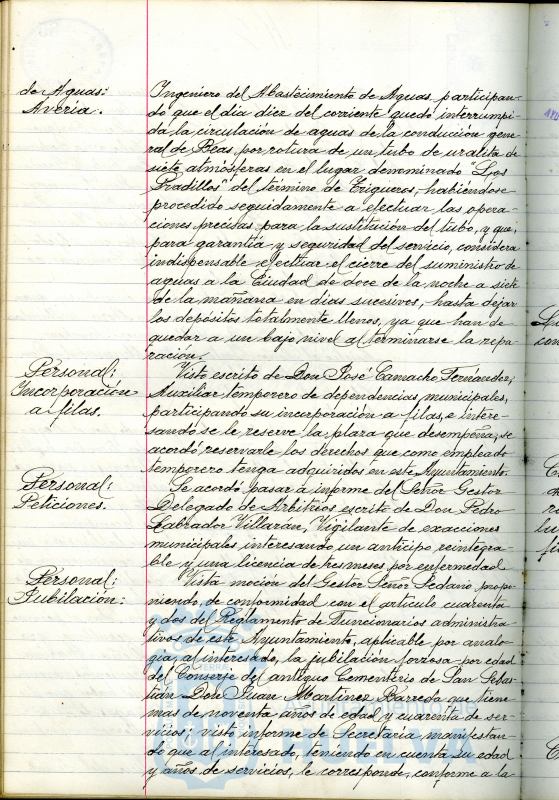 de Aguas:
Avería.
Ingeniero del Abastecimiento de Aguas participan-
do que el día diez del corriente quedó interrumpi-
da la circulación de aguas de la condución gene-
ral de Beas, por rotura de un tubo de uralita de
siete atmósferas en el lugar denominado "Los
Pradillos" del término de Trigueros, habiéndose
procedido seguidamente a efectuar las opera-
ciones precisas para la sustitución del tubo, y que,
para garantía y seguridad del servicio, considera
indispensable efectuar el cierre del suministro de
aguas a la Ciudad de doce de la noche a siete
de la mañana en días sucesivos, hasta dejar
los depósitos totalmente llenos, ya que han de
quedar a un bajo nivel al terminarse la repa-
ración.
Personal:
Incorporación
a filas.
Visto escrito de Don José Camacho Fernández,
Auxiliar temporero de dependencias municipales,
participando su incorporación a filas, e intere-
sando se le reserve la plaza que desempeña, se
acordó reservarle los derechos que como empleado
temporero tenga adquiridos en este Ayuntamiento.
Personal:
Peticiones.
Se acordó pasar a informe del Señor Gestor
Delegado de Arbitrios escrito de Don Pedro
Labrador Villarán, Vigilante de exacciones
municipales interesando un anticipo reintegra-
ble y una licencia de tres meses por enfermedad
Personal:
Jubilación:
Vista moción del Gestor Señor Sedano propo-
niendo, de conformidad con el artículo cuarenta
y dos del Reglamento de Funcionarios administra-
tivos de este Ayuntamiento, aplicable por analo-
gía, al interesado, la jubilación forzosa por edad
del Conserje del antiguo Cementerio de San Sebas-
tián Don Juan Martínez Barreda que tiene
mas de noventa años de edad y cuarenta de ser-
vicios; visto informe de Secretaría manifestan-
do que al interesado, teniendo en cuenta su edad
y años de servicios, le corresponde, conforme a la